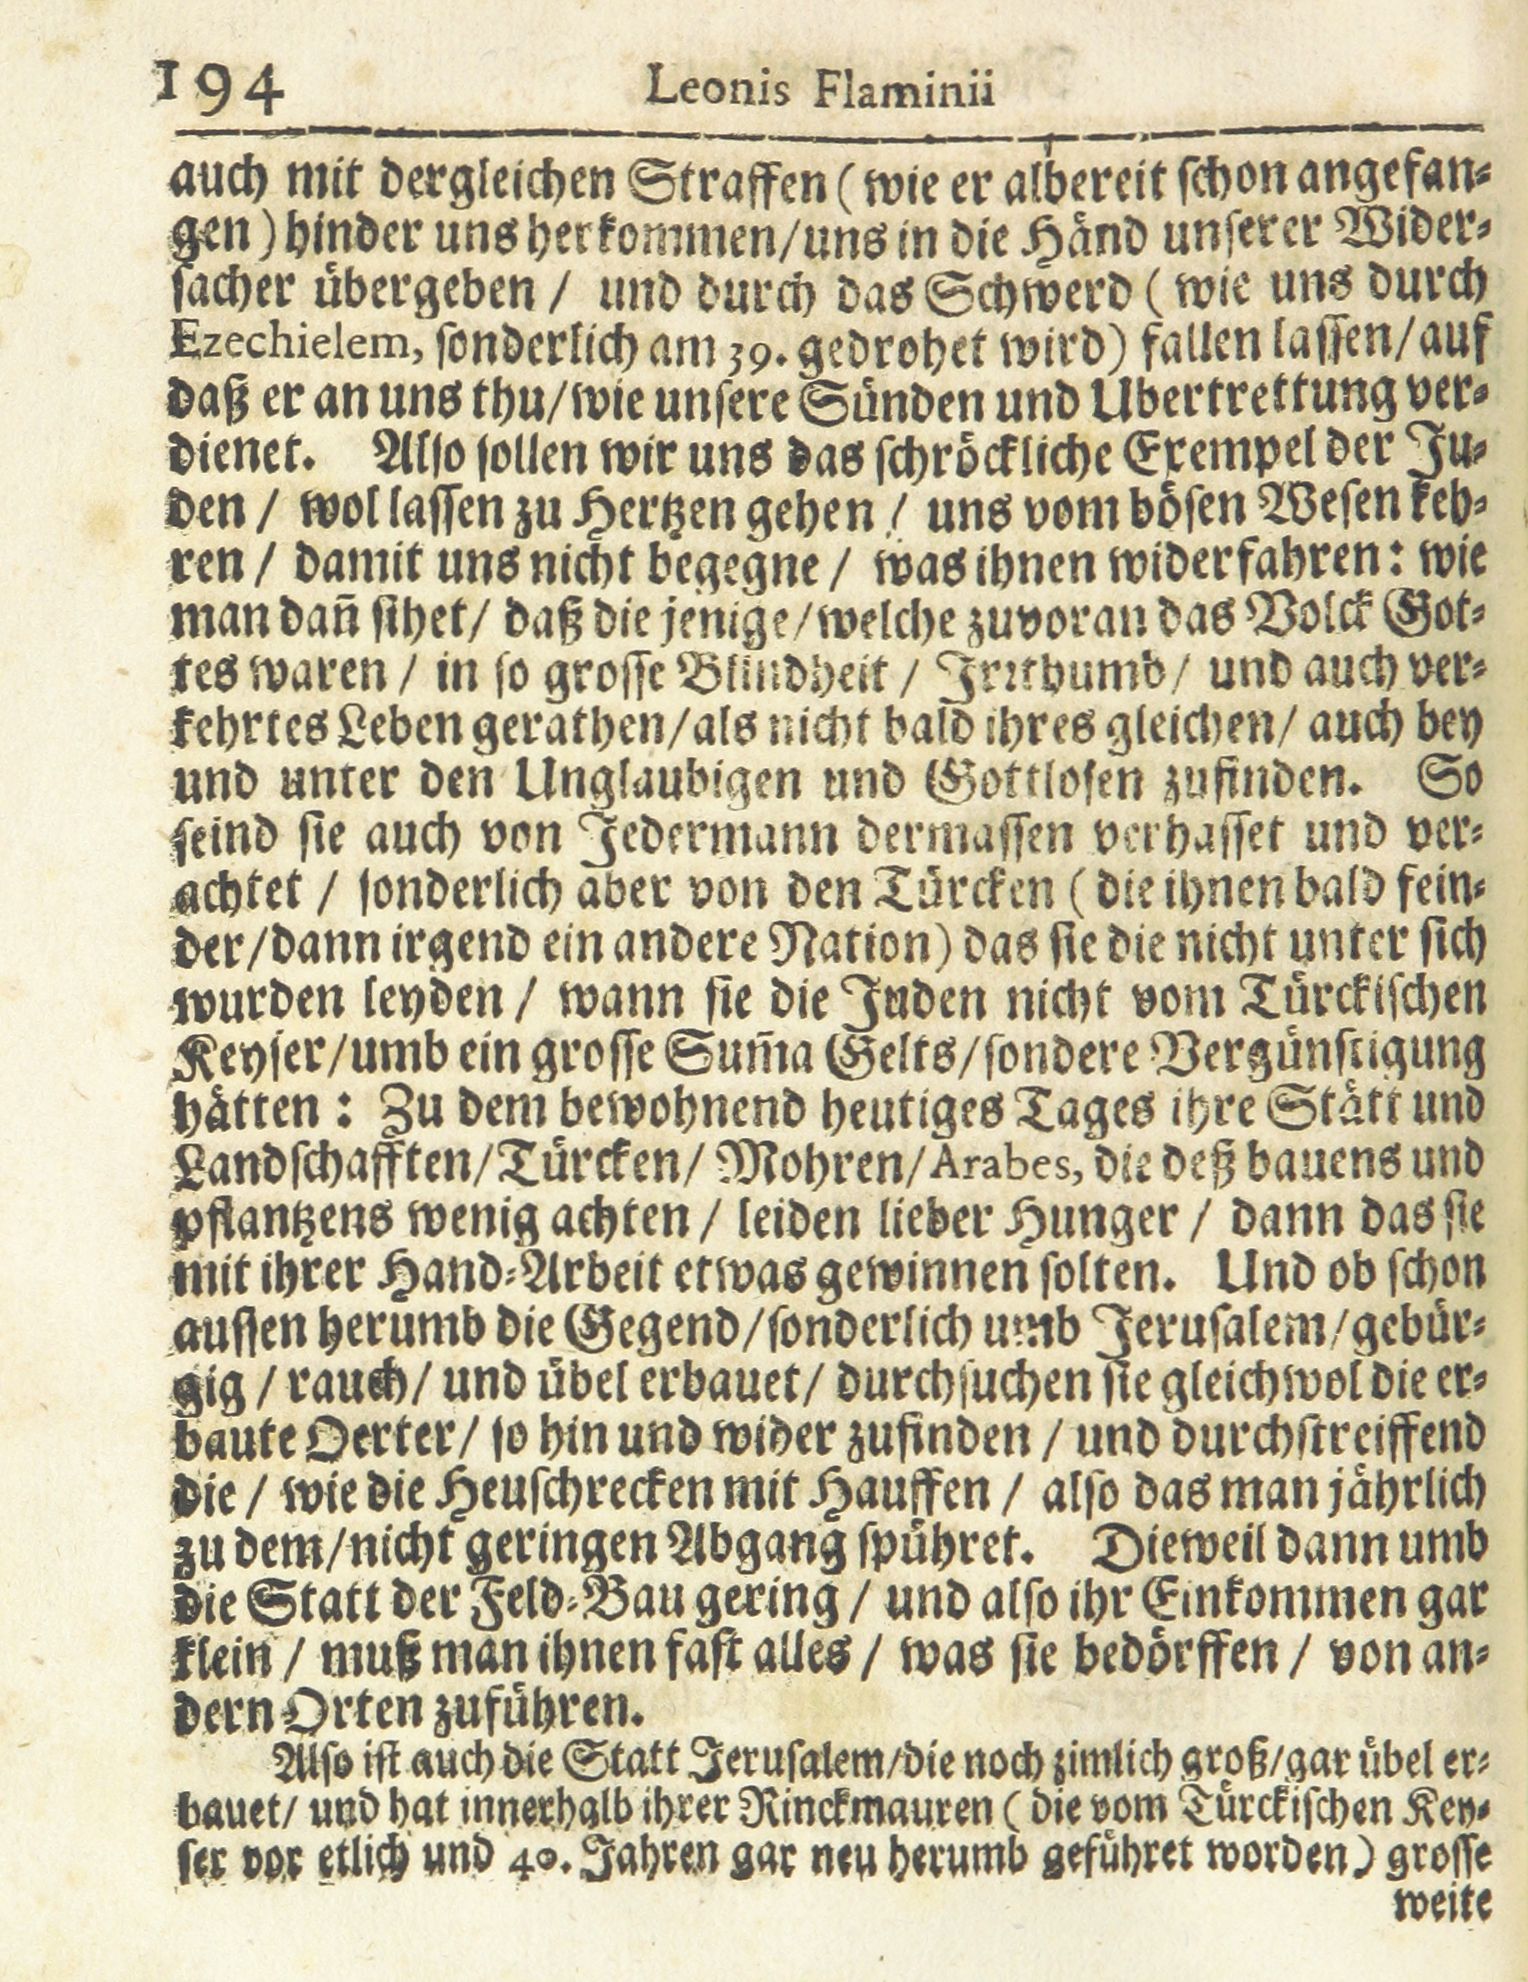 194 Leonis Flaminii
auch mit dergleichen Straffen (wie er albereit schon angefan-
gen) hinder uns herkommen/uns in die Händ unserer Wider-
sacher übergeben / und durch das Schwerd (wie uns durch
Ezechielem, sonderlich am 39. gedrohet wird) fallen lassen/auf
daß er an uns thu/wie unsere Sünden und Ubertrettung ver-
dienet. Also sollen wir uns das schröckliche Exempel der Ju-
den / wol lassen zu Hertzen gehen / uns vom bösen Wesen keh-
ren / damit uns nicht begegne / was ihnen widerfahren: wie
man dañ sihet/ daß die jenige/welche zuvoran das Volck Got-
tes waren / in so grosse Blindheit / Irrthumb/ und auch ver-
kehrtes Leben gerathen/als nicht bald ihres gleichen/ auch bey
und unter den Unglaubigen und Gottlosen zufinden. So
seind sie auch von Jedermann dermassen verhasset und ver-
achtet / sonderlich aber von den Türcken (die ihnen bald fein-
der/dann irgend ein andere Nation) das sie die nicht unter sich
wurden leyden / wann sie die Juden nicht vom Türckischen
Keyser/umb ein grosse Sum̃a Gelts/sondere Vergünstigung
hätten: Zu dem bewohnend heutiges Tages ihre Stätt und
Landschafften/Türcken/ Mohren/Arabes, die deß bauens und
pflantzens wenig achten / leiden lieber Hunger / dann das sie
mit ihrer Hand-Arbeit etwas gewinnen solten. Und ob schon
aussen herumb die Gegend/sonderlich umb Jerusalem/gebür-
gig / rauch/ und übel erbauet/ durchsuchen sie gleichwol die er-
baute Oerter/ so hin und wider zufinden / und durchstreiffend
die / wie die Heuschrecken mit Hauffen / also das man jährlich
zu dem/nicht geringen Abgang spühret. Dieweil dann umb
die Statt der Feld-Bau gering / und also ihr Einkommen gar
klein / muß man ihnen fast alles / was sie bedörffen / von an-
dern Orten zuführen.
Also ist auch die Statt Jerusalem/die noch zimlich groß/gar übel er-
bauet/ und hat innerhalb ihrer Rinckmauren (die vom Türckischen Key-
ser vor etlich und 40. Jahren gar neu herumb geführet worden) grosse
weite